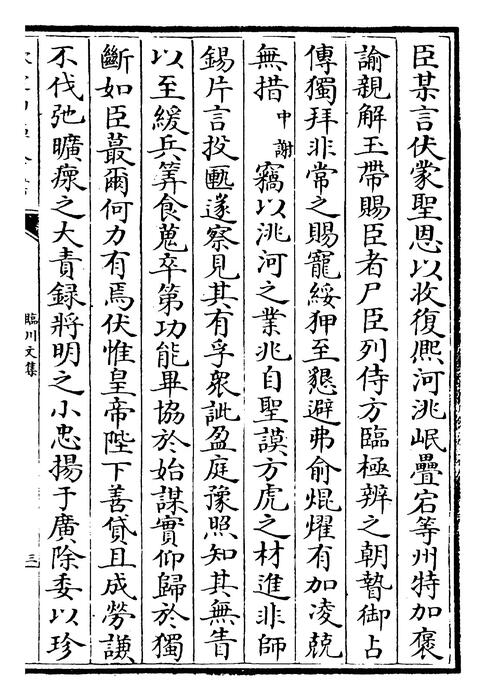 臣某言伏蒙聖恩以收復熈河洮岷疊宕等州特加襃
諭親解玉帶賜臣者尸臣列侍方臨極辨之朝贄御占
傳獨拜非常之賜寵綏狎至懇避弗俞焜燿有加凌兢
無措中謝竊以洮河之業兆自聖謨方虎之材進非師
錫片言投匭遂察見其有孚衆訿盈庭豫照知其無眚
以至緩兵筭食蒐卒第功能畢協於始謀實仰歸於獨
斷如臣蕞爾何力有焉伏惟皇帝陛下善貸且成勞謙
不伐弛曠瘝之大責録將明之小忠揚于廣除委以珍
臨川文集
三